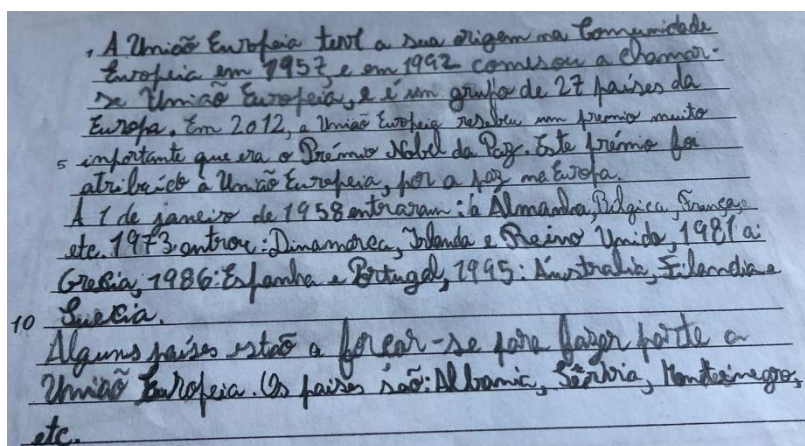 , A União Europeia teve a sua origem na Comunidade
Europeia em 1957, e em 1992 comesou a chamar-
se União Europeia, e é um grupo de 27 países da
Europa. Em 2012, a União Europeia resebeu um premio muito
5 importante que era o Prémio Nobel da Paz. Este prémio foi
atribuído a União Europeia, por a paz na Europa.
A 1 de janeiro de 1958 entraram: a Almanha, Bélgica, França,
etc. 1973 entrou: Dinamarca, Irlanda e Reino Unido, 1981 a:
Gresia, 1986: Espanha e Portugal, 1995: Áustralia, Filandia e
10 Suesia.
Alguns países estão a forcar-se para fazer parte a
União Europeia. Os países são: Albania, Sérbia, Montesinegro,
etc.